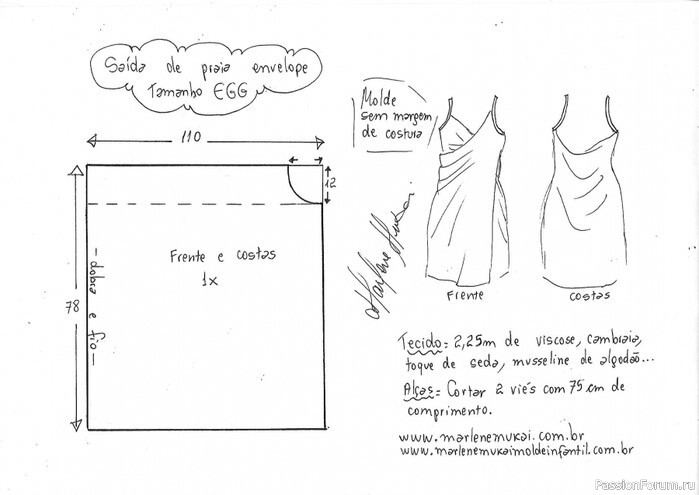 Saída de praia envelope
Tamanho EGG
110
12
78
-dobra e fio-
Frente e costas
1x
Molde
sem margem
de costura
Marlene Mukai.
Frente
costas
Tecido= 2,25m de viscose, cambraia,
toque de seda, musseline de algodão...
Alças= Cortar 2 viés com 75 cm de
comprimento.
www.marlenemukai.com.br
www.marlenemukaimoldeinfantil.com.br
PassionForum.ru